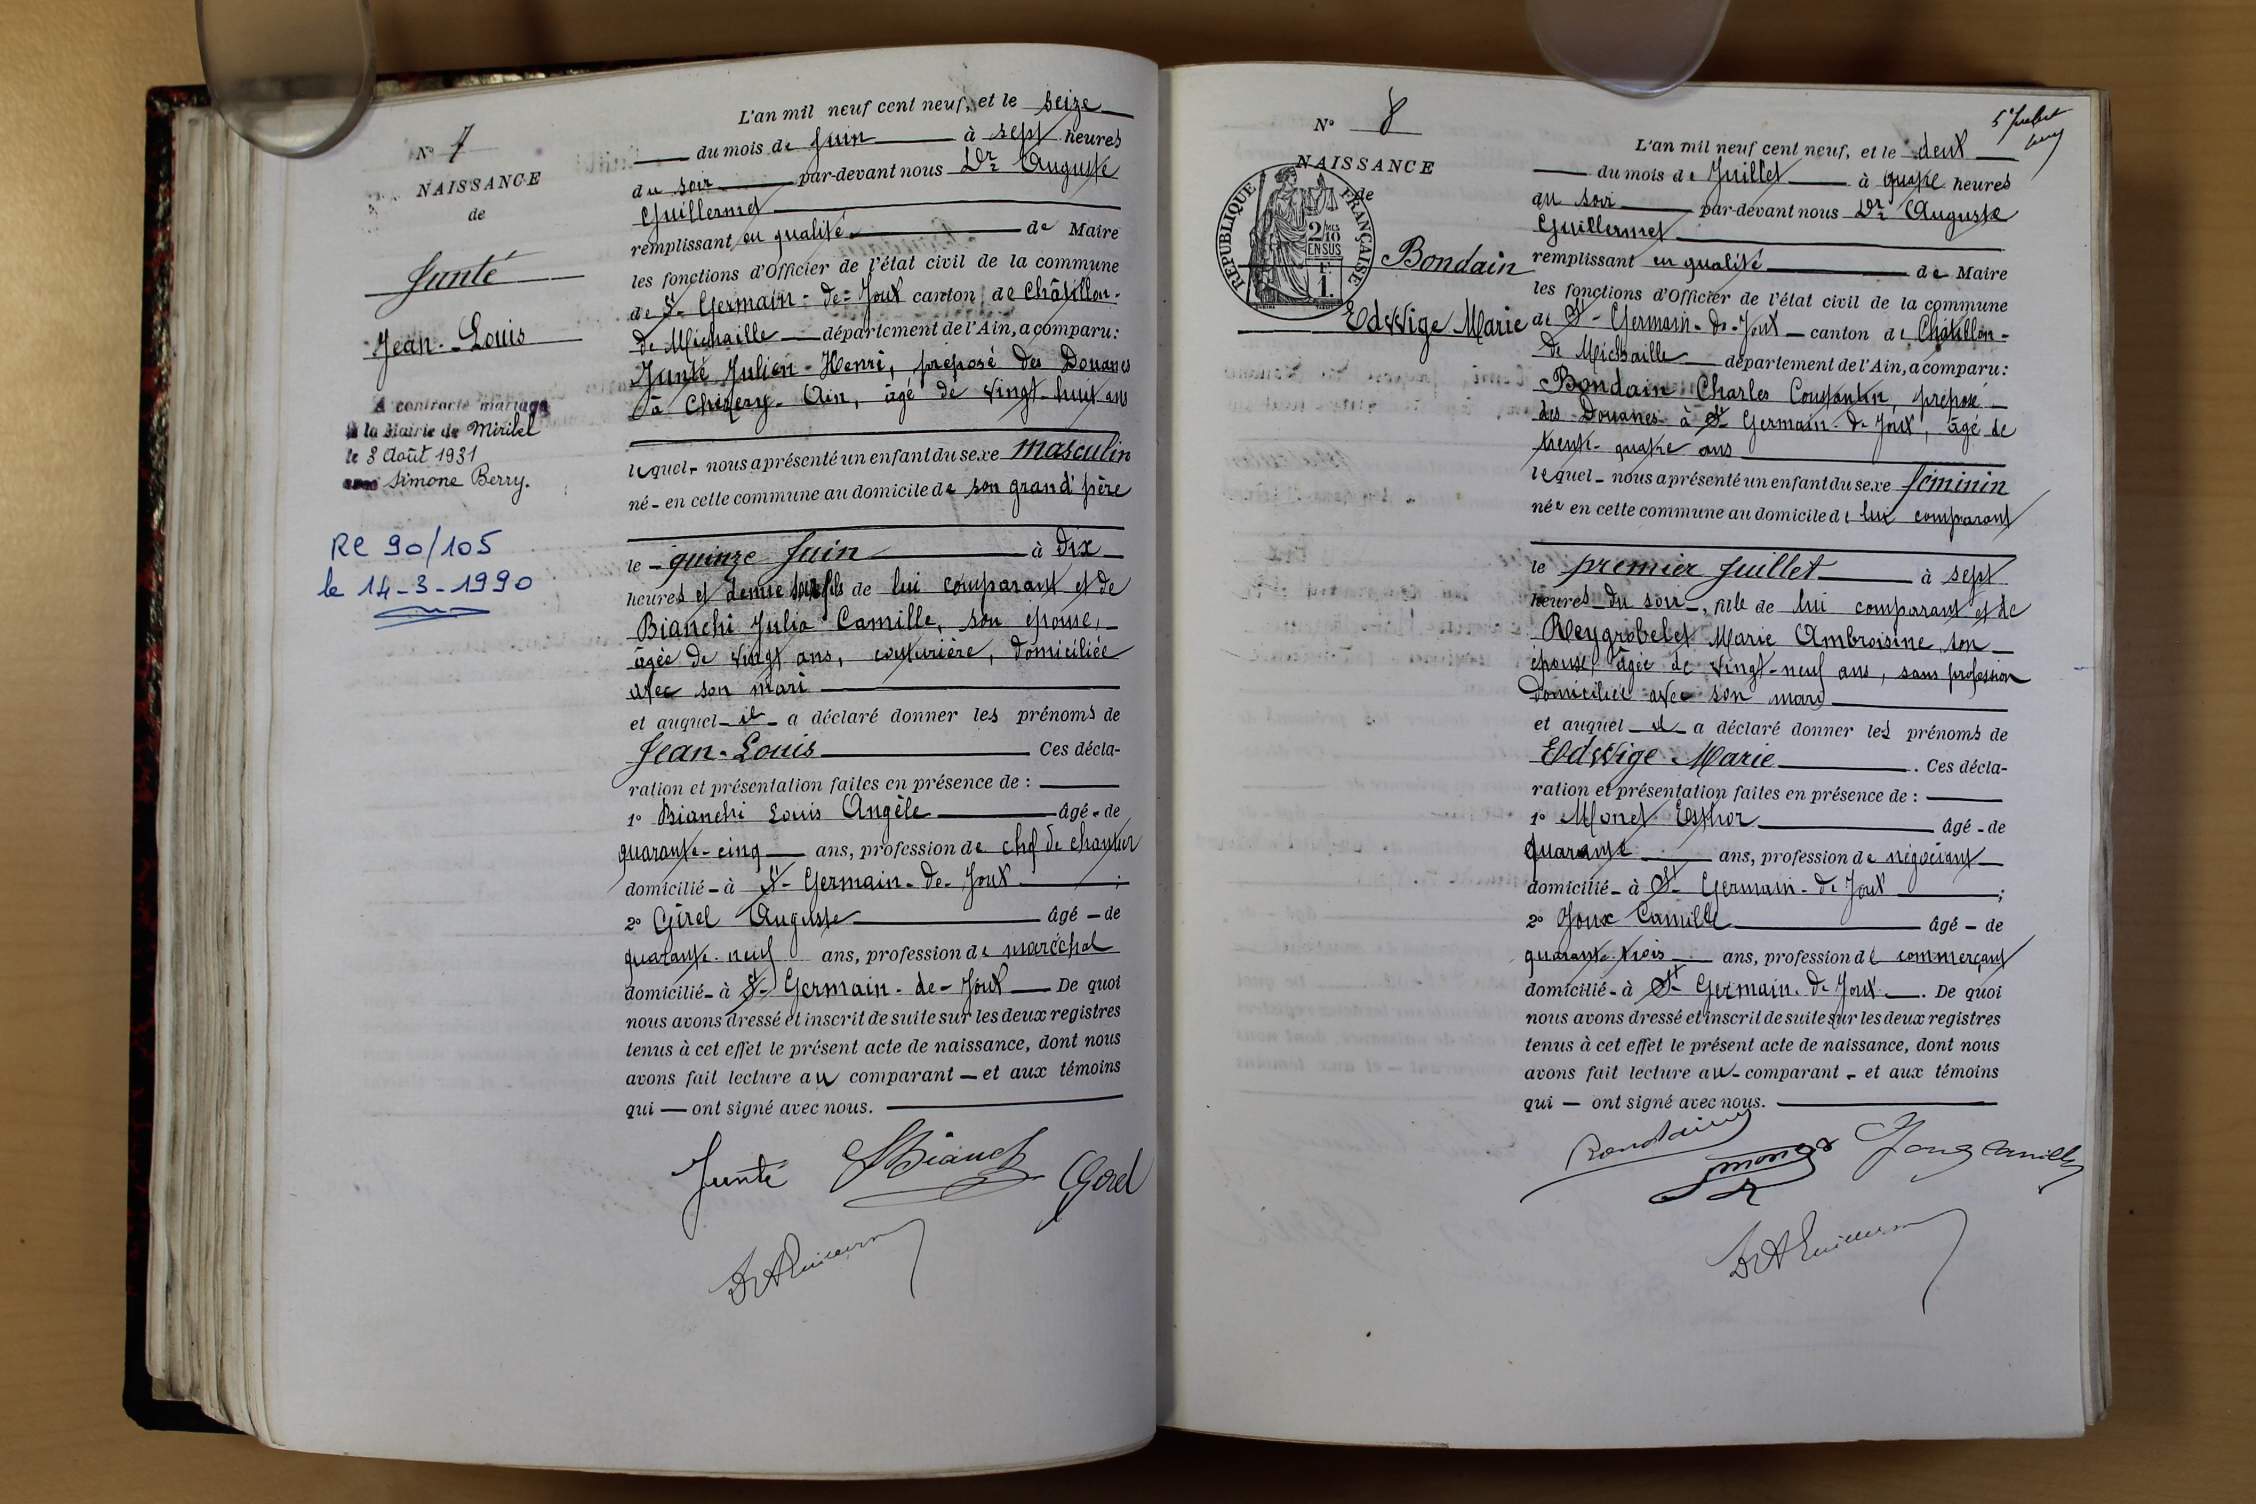 N° 7
NAISSANCE
de
Junté
Jean-Louis
A contracté mariage
à la Mairie de Miribel
le 3 Août 1931
avec Simone Berry.
RC 90/105
le 14-3-1990
L'an mil neuf cent neuf, et le seize
du mois de Juin à sept heures
du soir par-devant nous Dr Auguste
Guillermet
remplissant en qualité de Maire
les fonctions d'Officier de l'état civil de la commune
de St-Germain-de-Joux canton de Châtillon-
de Michaille département de l'Ain, a comparu:
Junté Julien-Henri, préposé des Douanes
à Chézery-Ain, âgé de vingt-huit ans
lequel nous a présenté un enfant du sexe masculin
né en cette commune au domicile de son grand'père
le quinze Juin à dix
heures et demie soir fils de lui comparant et de
Bianchi Julia Camille, son épouse,
âgée de vingt ans, couturière, domiciliée
avec son mari
et auquel il a déclaré donner les prénoms de
Jean-Louis Ces décla-
ration et présentation faites en présence de :
1° Bianchi Louis Angèle âgé de
quarante-cinq ans, profession de chef de chantier
domicilié à St-Germain-de-Joux ;
2° Girel Auguste âgé de
quarante-neuf ans, profession de maréchal
domicilié à St-Germain-de-Joux De quoi
nous avons dressé et inscrit de suite sur les deux registres
tenus à cet effet le présent acte de naissance, dont nous
avons fait lecture au comparant et aux témoins
qui ont signé avec nous.
Junté Bianchi Girel
Dr A Guillermet
N° 8
NAISSANCE
de
RÉPUBLIQUE FRANÇAISE
2/10 EN SUS
1 F.
Bondain
Edwige Marie
5 Juillet
L'an mil neuf cent neuf, et le deux
du mois de Juillet à quatre heures
du soir par-devant nous Dr Auguste
Guillermet
remplissant en qualité de Maire
les fonctions d'Officier de l'état civil de la commune
de St-Germain-de-Joux canton de Châtillon-
de Michaille département de l'Ain, a comparu:
Bondain Charles Constantin, préposé
des Douanes à St Germain-de Joux, âgé de
trente-quatre ans
lequel nous a présenté un enfant du sexe féminin
née en cette commune au domicile de lui comparant
le premier Juillet à sept
heures du soir, fille de lui comparant et de
Reygrobelet Marie Ambroisine son
épouse, âgée de vingt-neuf ans, sans profession
domiciliée avec son mari
et auquel il a déclaré donner les prénoms de
Edwige Marie . Ces décla-
ration et présentation faites en présence de :
1° Monet Esther âgé de
quarante ans, profession de négociant
domicilié à St-Germain-de Joux ;
2° Joux Camille âgé de
quarante-trois ans, profession de commerçant
domicilié à St-Germain-de Joux . De quoi
nous avons dressé et inscrit de suite sur les deux registres
tenus à cet effet le présent acte de naissance, dont nous
avons fait lecture au comparant et aux témoins
qui ont signé avec nous.
Bondain Monet Joux Camille
Dr A Guillermet